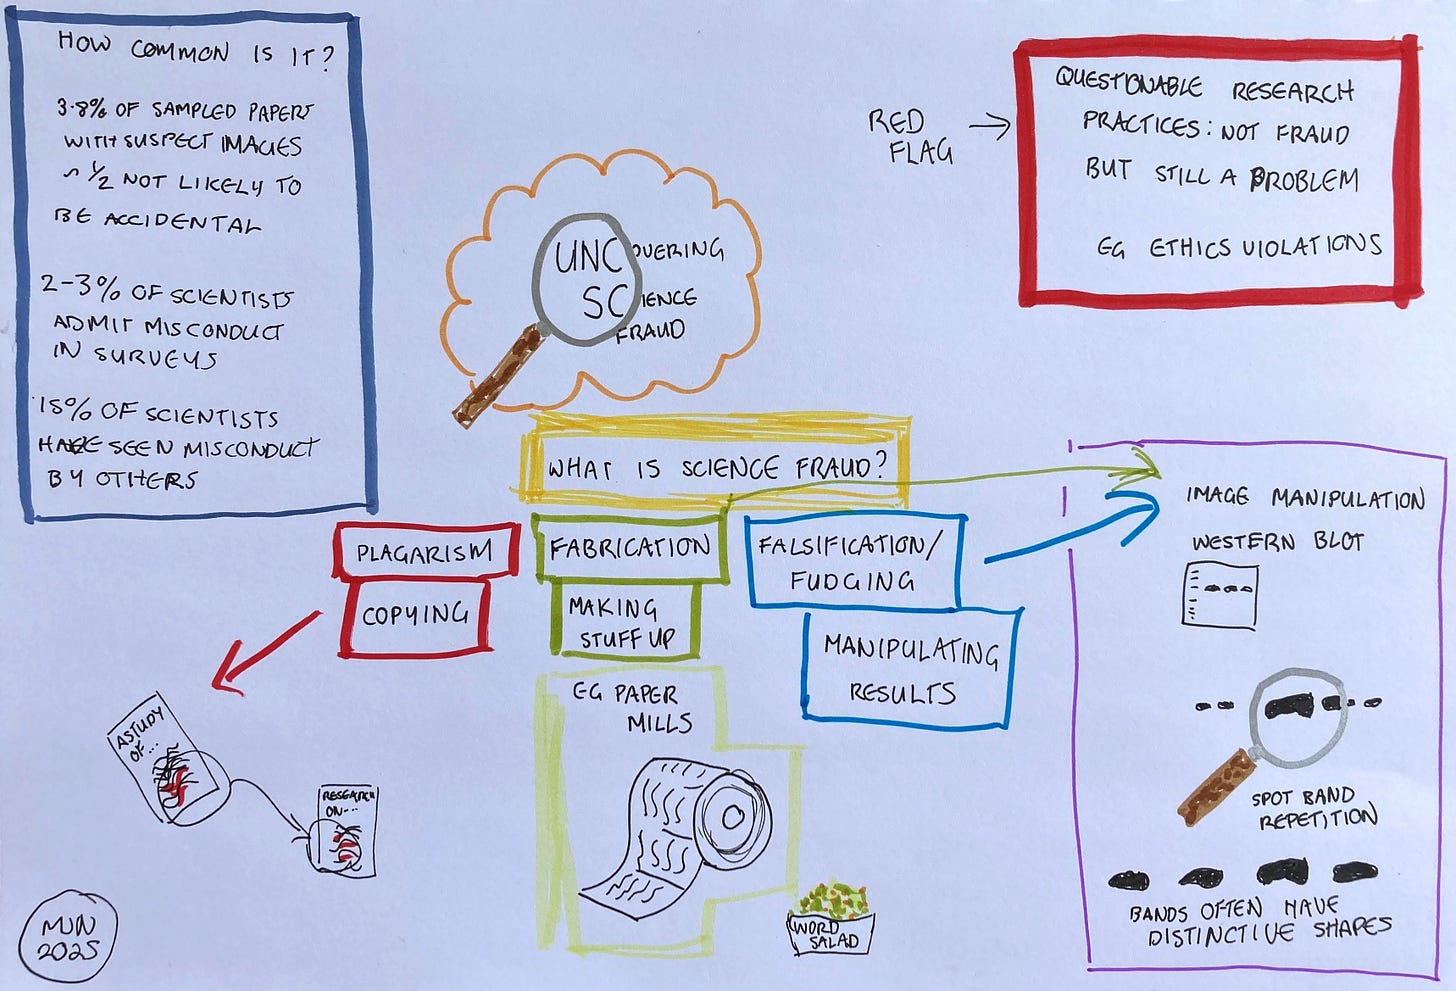 HOW COMMON IS IT?
3.8% OF SAMPLED PAPERS
WITH SUSPECT IMAGES
~ 1/2 NOT LIKELY TO
BE ACCIDENTAL
2-3% OF SCIENTISTS
ADMIT MISCONDUCT
IN SURVEYS
15% OF SCIENTISTS
HAVE SEEN MISCONDUCT
BY OTHERS
UNCOVERING
SCIENCE
FRAUD
RED
FLAG
QUESTIONABLE RESEARCH
PRACTICES: NOT FRAUD
BUT STILL A PROBLEM
EG ETHICS VIOLATIONS
WHAT IS SCIENCE FRAUD?
PLAGARISM
COPYING
FABRICATION
MAKING
STUFF UP
EG PAPER
MILLS
FALSIFICATION/
FUDGING
MANIPULATING
RESULTS
IMAGE MANIPULATION
WESTERN BLOT
SPOT BAND
REPETITION
BANDS OFTEN HAVE
DISTINCTIVE SHAPES
A STUDY
OF...
RESEARCH
ON...
WORD
SALAD
MJN
2025